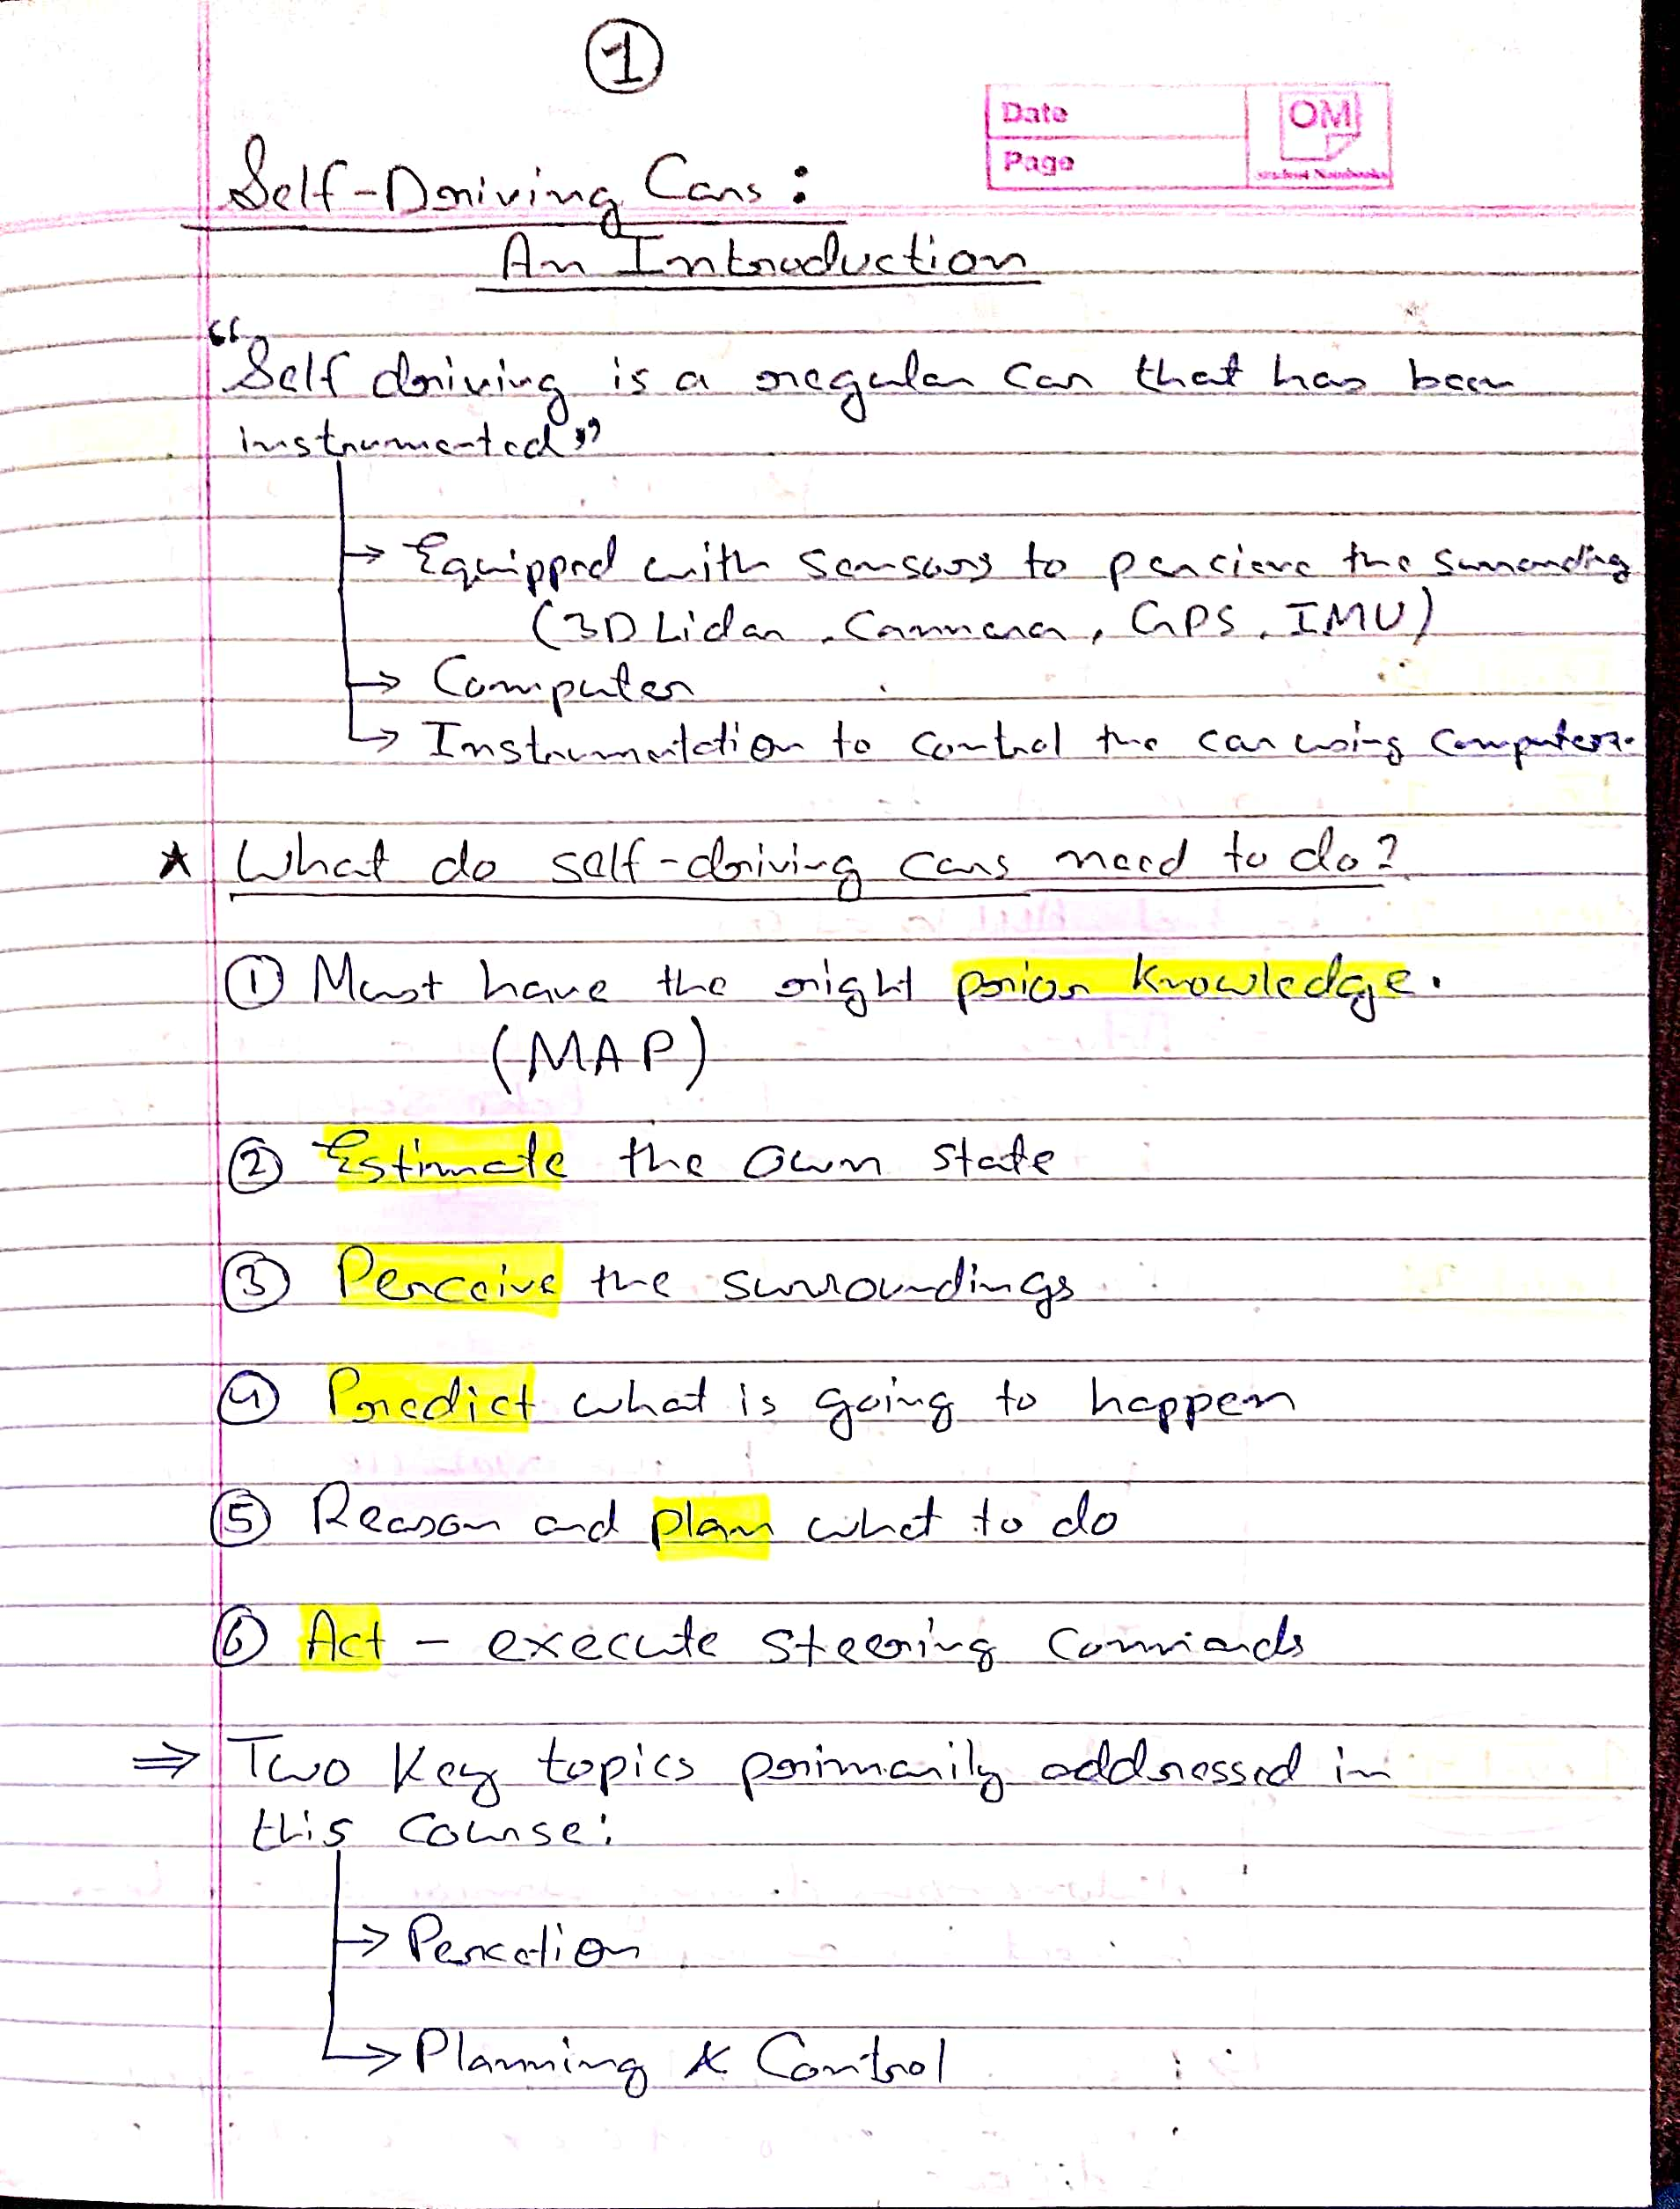 1
Date
OM
Page
Student Notebooks
Self-Driving Cars:
An Introduction
“Self driving is a regular car that has been
instrumented”
→ Equipped with sensors to percieve the surrounding
(3D Lidar, Cammera, GPS, IMU)
→ Computer
→ Instrumentation to control the car using computers.
★ What do self-driving cars need to do?
① Must have the right prior knowledge.
(MAP)
② Estimate the own state
③ Perceive the surroundings
④ Predict what is going to happen
⑤ Reason and plan what to do
⑥ Act – execute steering commands
⇒ Two key topics primarily addressed in
this course:
→ Percetion
→ Planning & Control